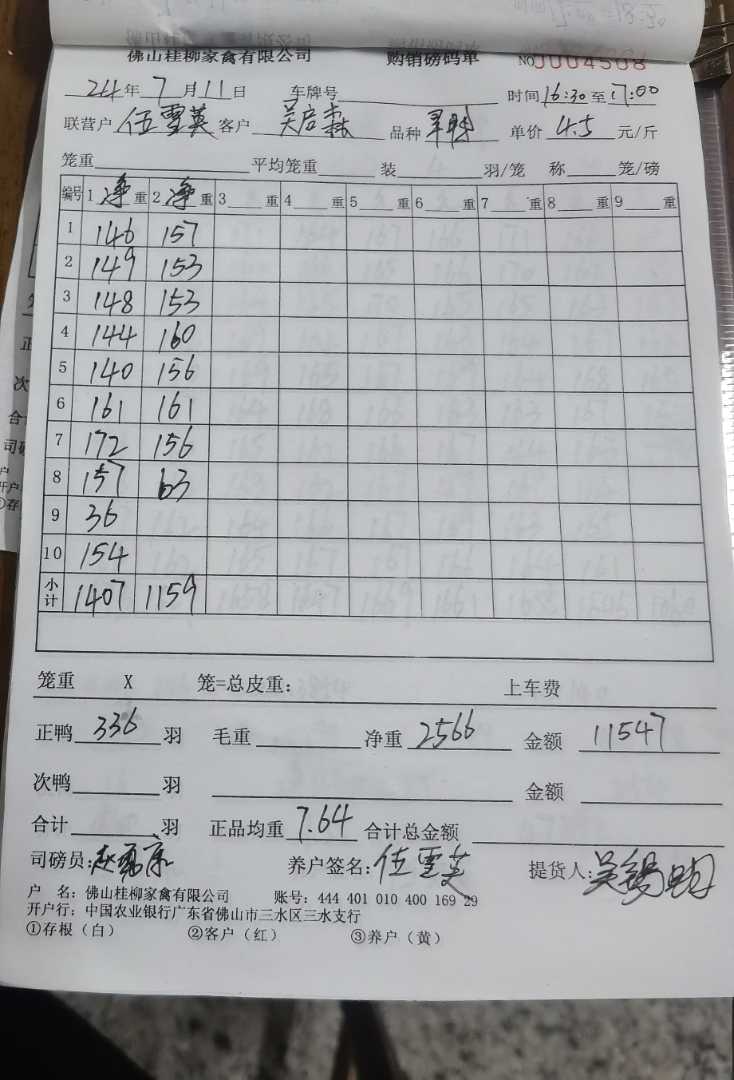 佛山桂柳家禽有限公司 购销磅码单 NO 0004508
24年7月11日 车牌号 时间16:30至17:00
联营户 伍雪英 客户 吴启森 品种 单价 4.5 元/斤
笼重 平均笼重 装 羽/笼 称 笼/磅
编号 1 净 重 2 净 重 3 重 4 重 5 重 6 重 7 重 8 重 9 重
1 146 157
2 149 153
3 148 153
4 144 160
5 140 156
6 161 161
7 172 156
8 157 63
9 36
10 154
小计 1407 1159
笼重 X 笼=总皮重: 上车费
正鸭 336 羽 毛重 净重 2566 金额 11547
次鸭 羽 金额
合计 羽 正品均重 7.64 合计总金额
司磅员: 养户签名: 伍雪英 提货人:
户 名: 佛山桂柳家禽有限公司 账号: 444 401 010 400 169 29
开户行: 中国农业银行广东省佛山市三水区三水支行
①存根（白） ②客户（红） ③养户（黄）